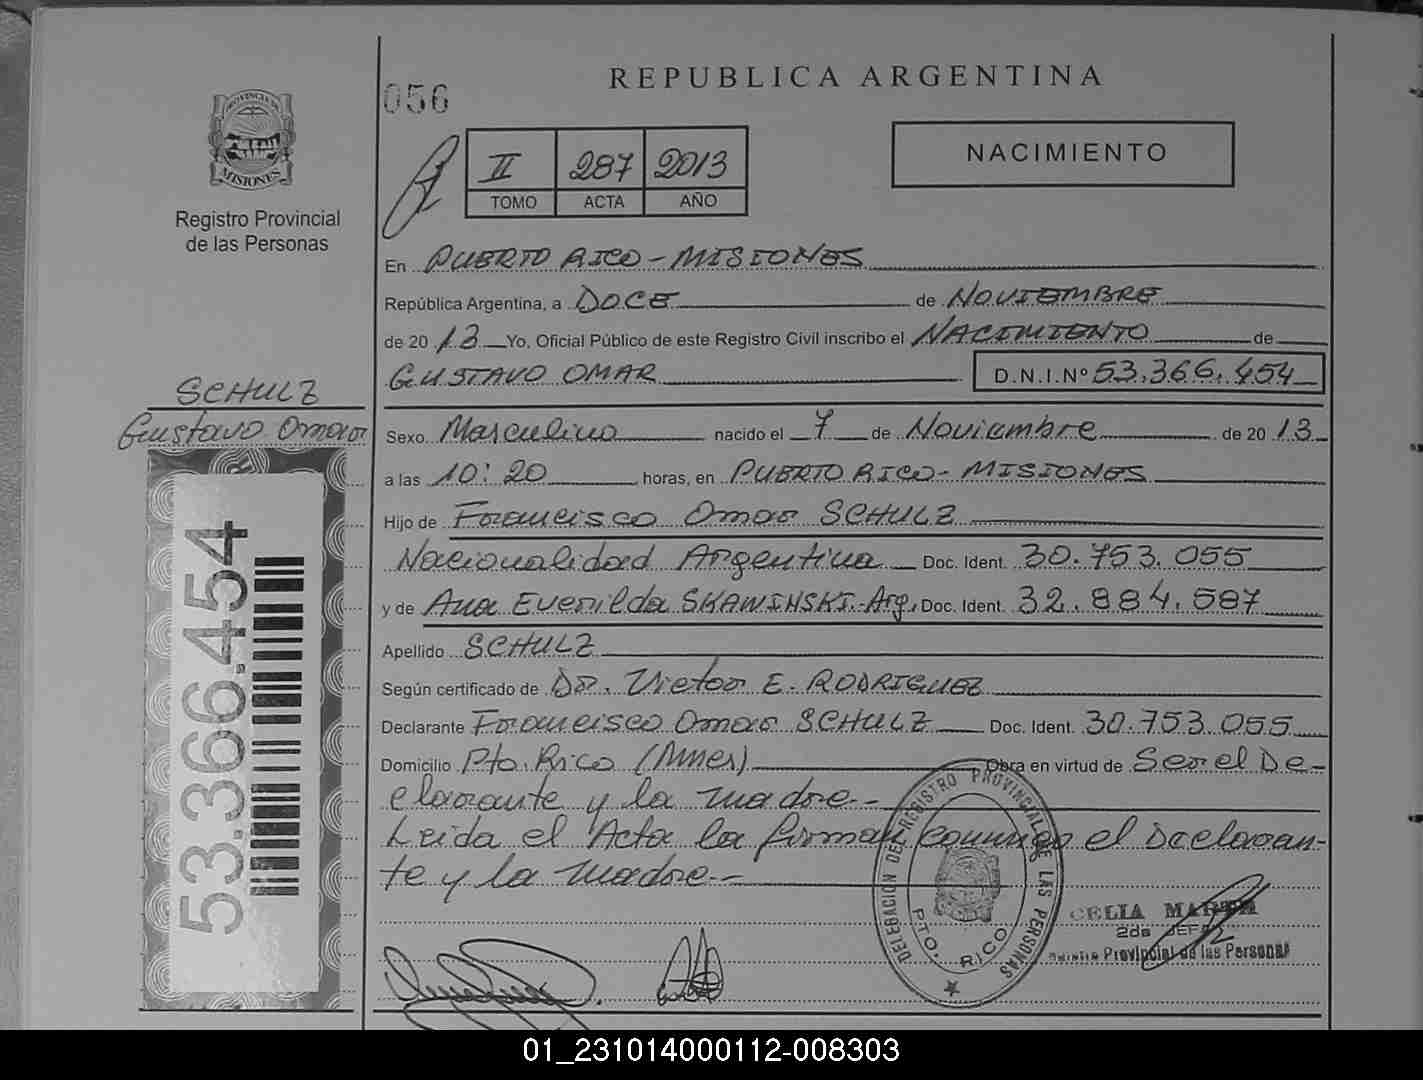 REPUBLICA ARGENTINA
056
PROVINCIA DE
MISIONES
Registro Provincial
de las Personas
II 287 2013
TOMO ACTA AÑO
NACIMIENTO
En PUERTO RICO - MISIONES
República Argentina, a DOCE de NOVIEMBRE
de 20 13 Yo, Oficial Público de este Registro Civil inscribo el NACIMIENTO de
GUSTAVO OMAR D.N.I.Nº 53.366.454
SCHULZ
Gustavo Omar
Sexo Masculino nacido el 7 de Noviembre de 20 13
a las 10:20 horas, en PUERTO RICO - MISIONES
Hijo de Francisco Omar SCHULZ
Nacionalidad Argentina Doc. Ident. 30.753.055
y de Ana Evenilda SKAWINSKI-Arg. Doc. Ident. 32.884.587
Apellido SCHULZ
Según certificado de Dr. Victor E. RODRIGUEZ
Declarante Francisco Omar SCHULZ Doc. Ident. 30.753.055
Domicilio Pto. Rico (Mnes) Obra en virtud de Ser el De-
clarante y la madre.-
Leida el Acta la firman conmigo el Declaran-
te y la madre.-
53.366.454
DELEGACION DEL REGISTRO PROVINCIAL DE LAS PERSONAS
PTO. RICO
CELIA
2da JEFE
Provincial de las Personas
01_231014000112-008303